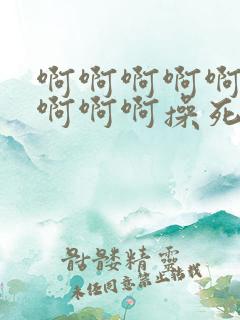 啊啊啊啊啊
啊啊啊操死
骷髅精灵
未经同意禁止转载